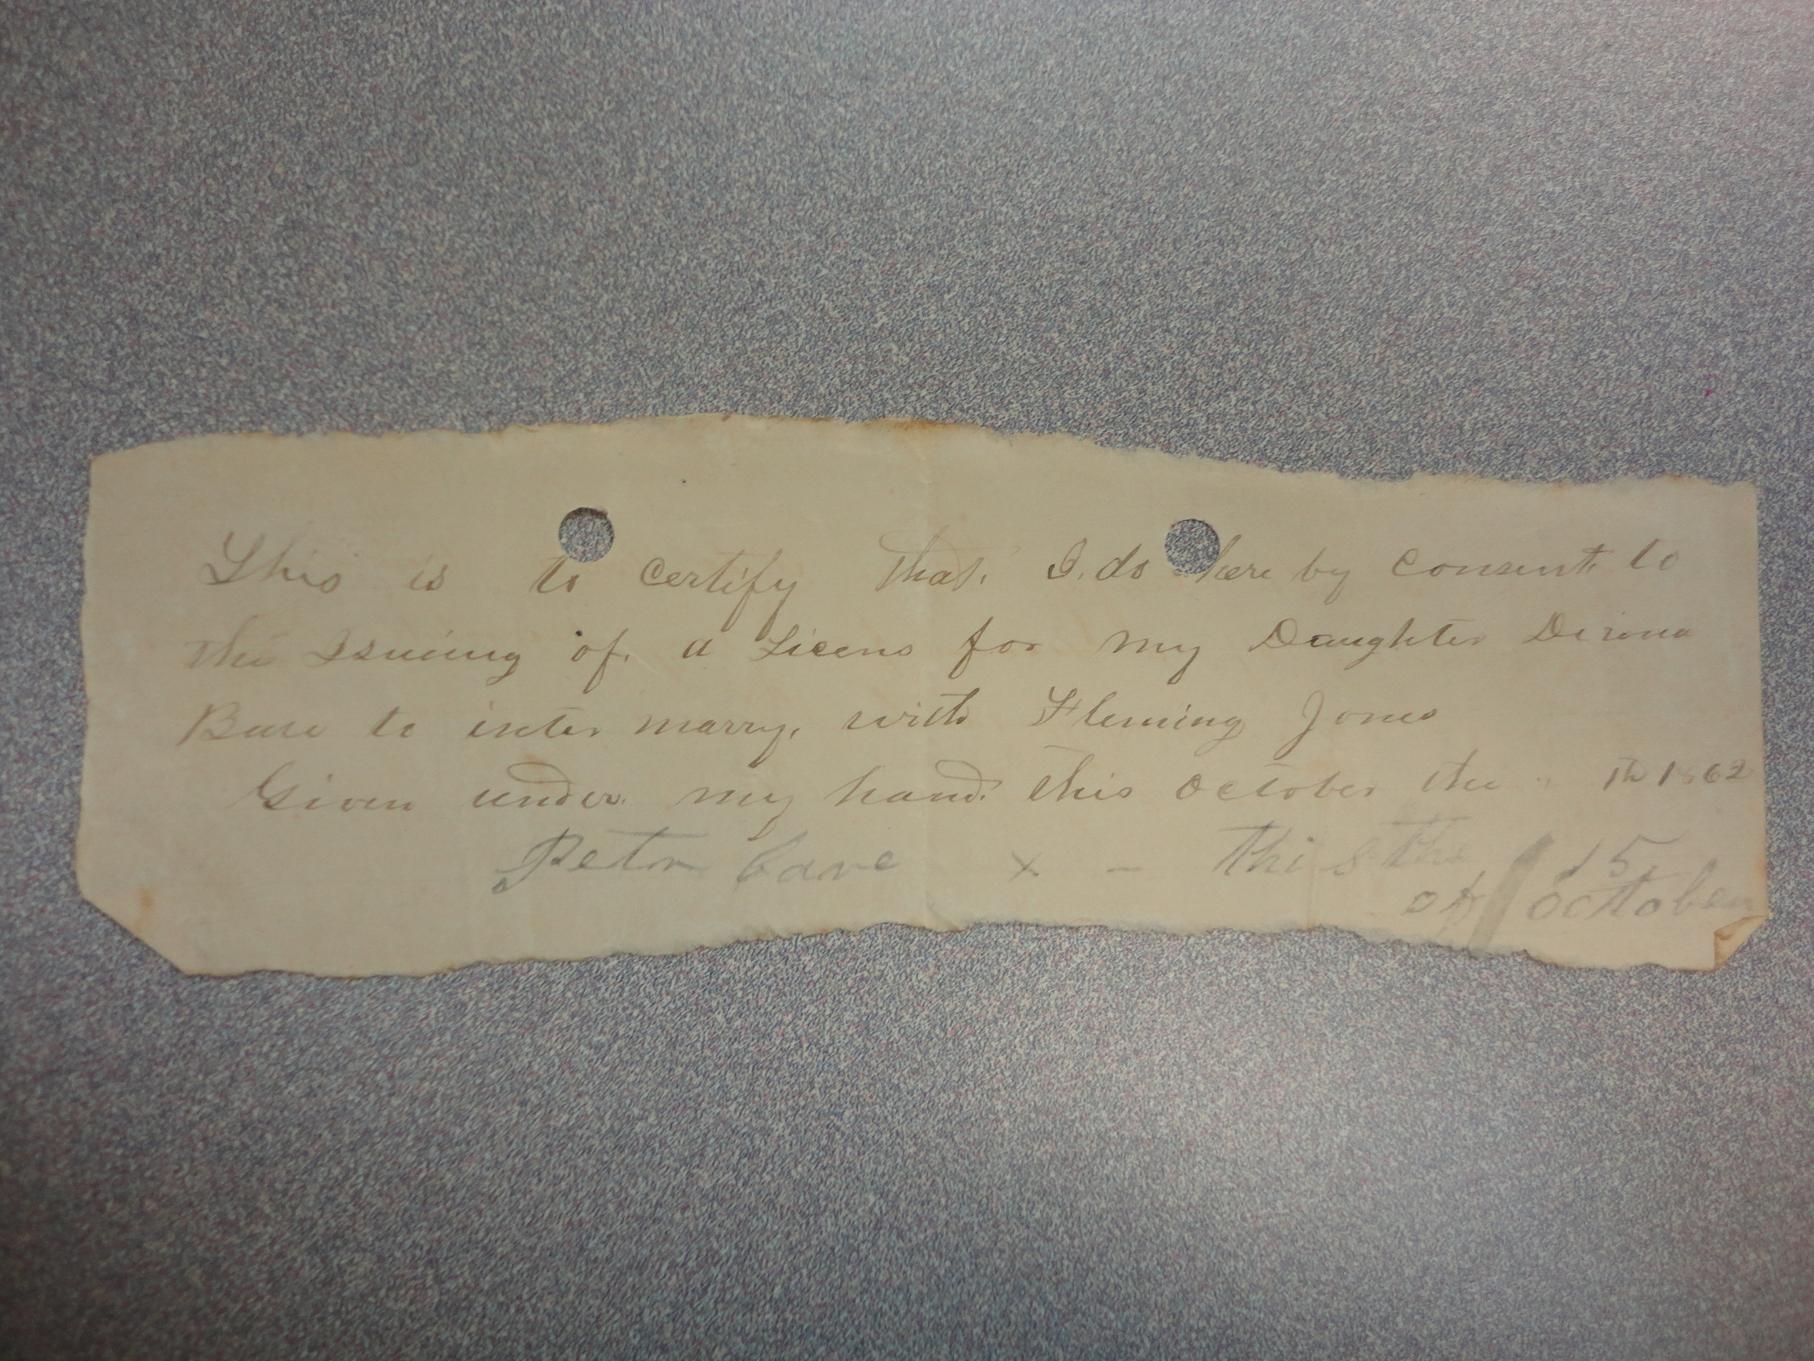 This is to certify that. I. do here by consent to
the Issuing of. a Licens for my Daughter Direna
to inter marry, with Fleming Jones
Given under my hand. this October the Th 1862
Peter Cave x - this the 15
of october